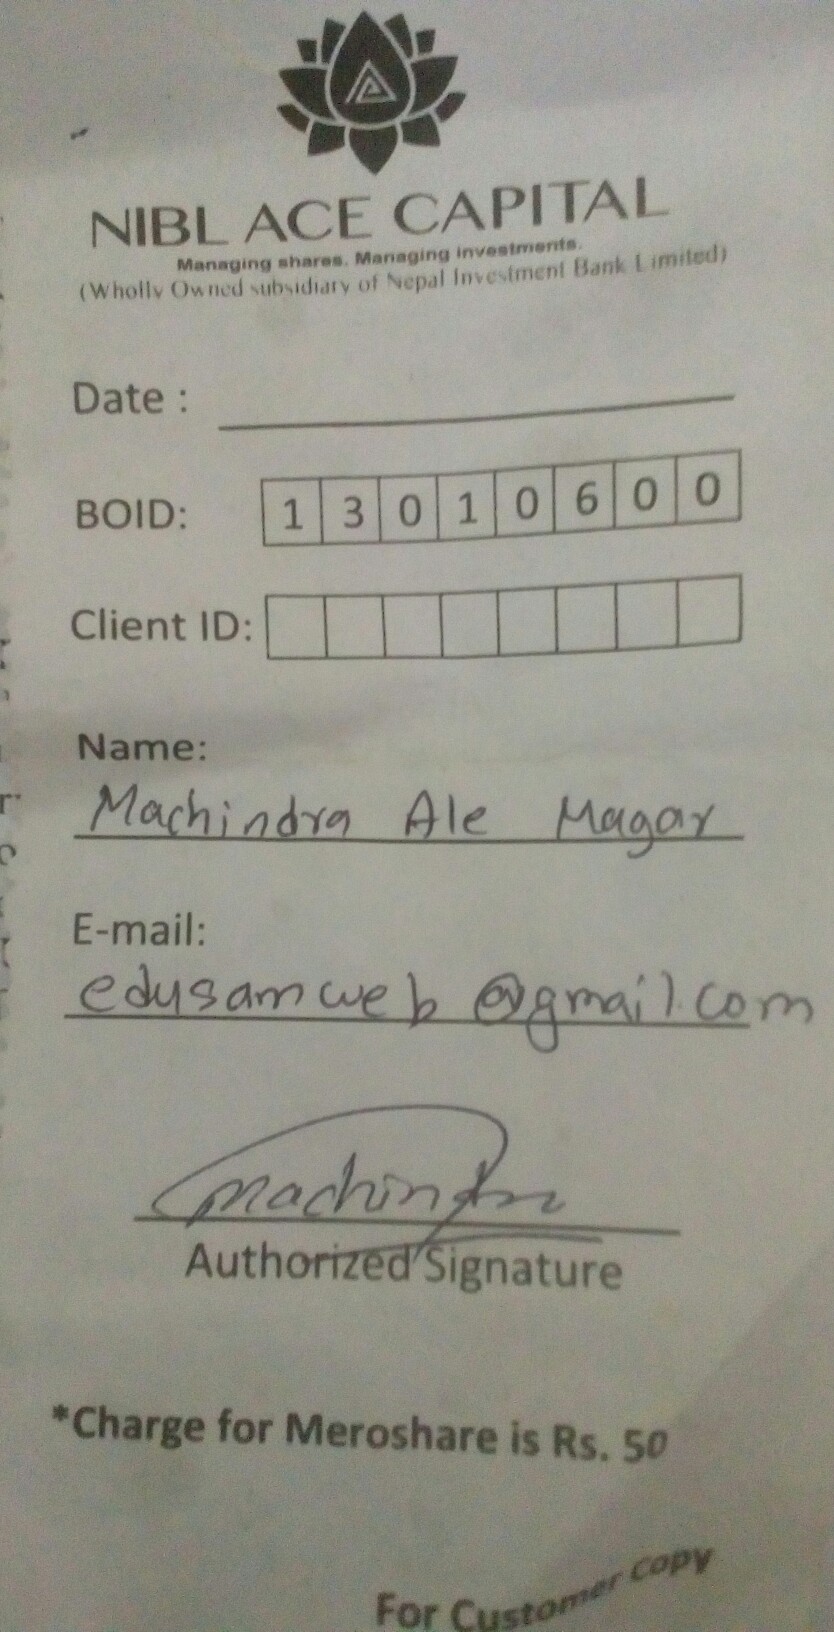 NIBL ACE CAPITAL
Managing shares. Managing investments.
(Wholly Owned subsidiary of Nepal Investment Bank Limited)
Date :
BOID: 1 3 0 1 0 6 0 0
Client ID:
Name:
Machindra Ale Magar
E-mail:
edusamweb@gmail.com
Machindra
Authorized Signature
*Charge for Meroshare is Rs. 50
For Customer Copy